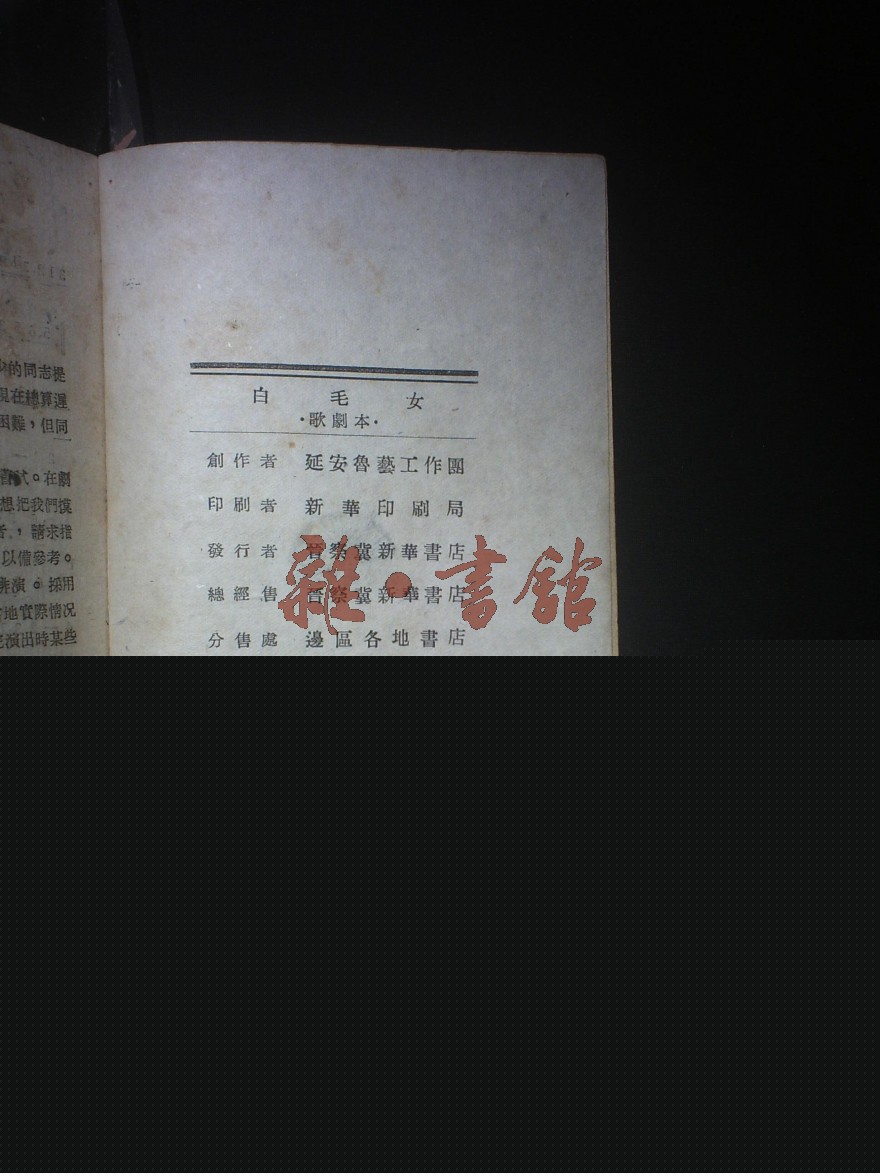 的同志提
現在總算遲
困難，但同
在劇
想把我們摸
，請求指
以備參考。
排演。採用
地實際情况
演出時某些
白毛女
·歌劇本·
創作者 延安魯藝工作團
印刷者 新華印刷局
發行者 晉察冀新華書店
總經售 晉察冀新華書店
分售處 邊區各地書店
雜·書館